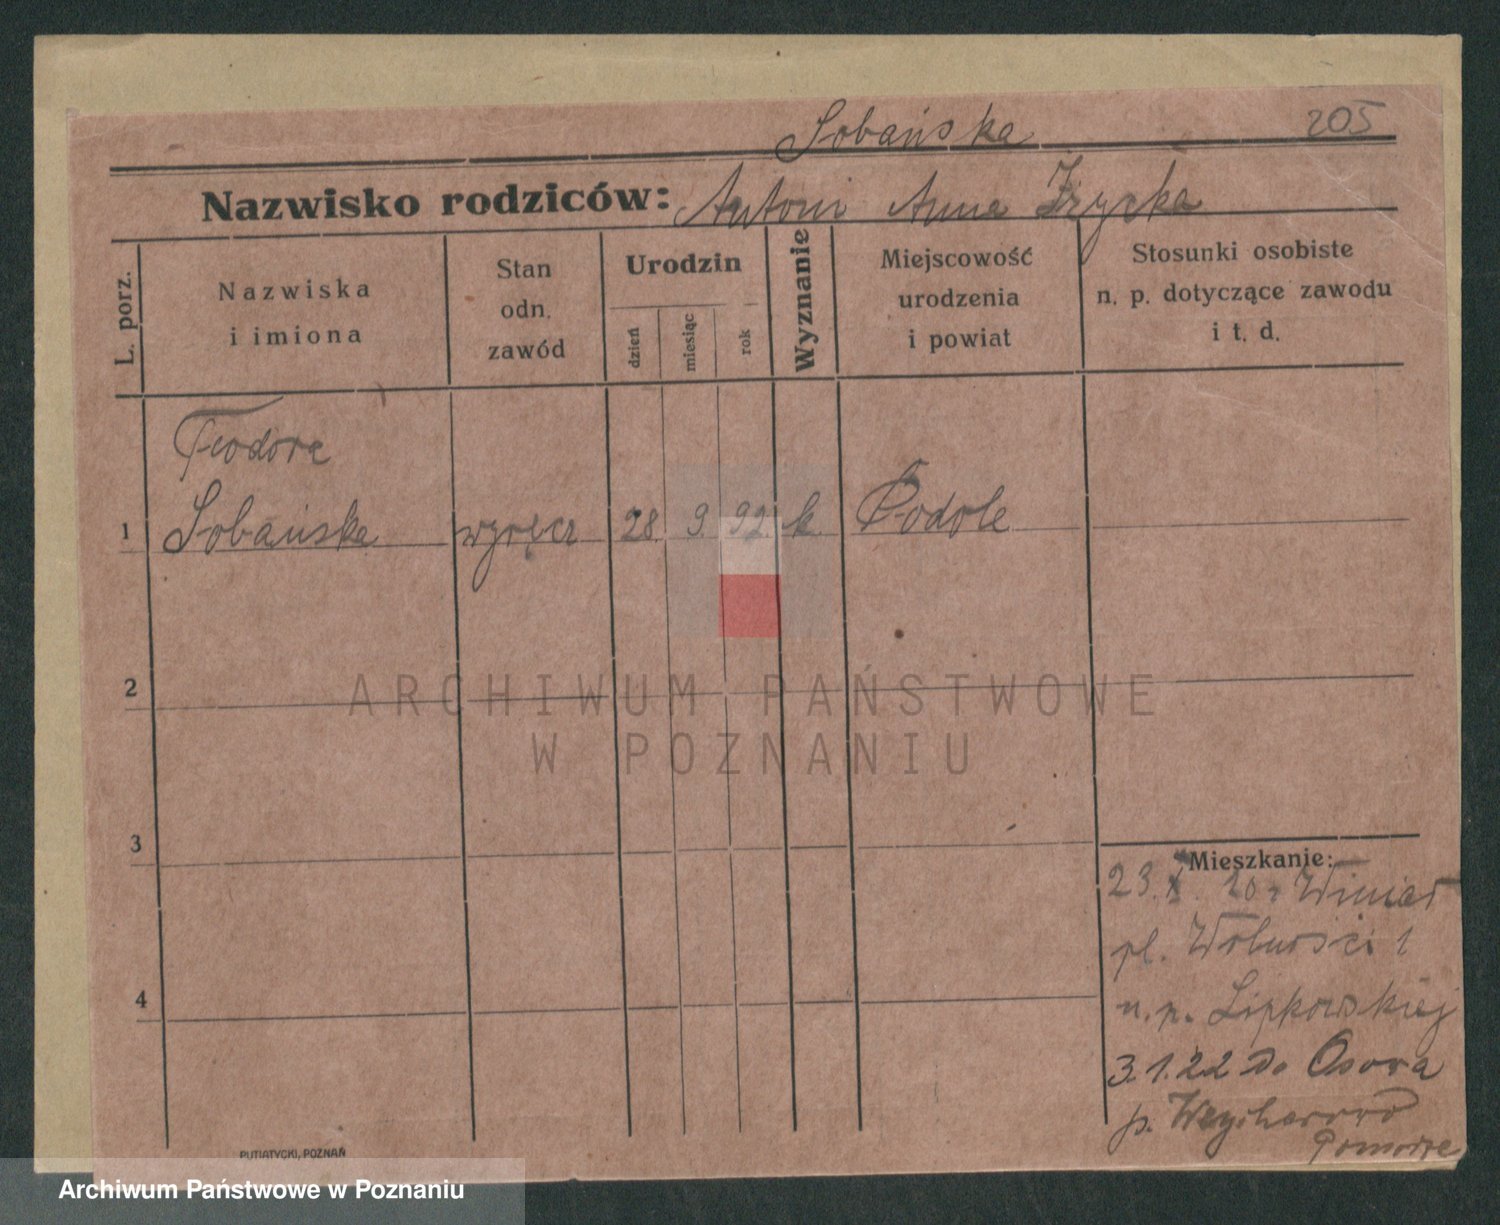 Sobańska 205
Nazwisko rodziców: Antoni Anna
L. porz.
Nazwiska
i imiona
Stan
odn.
zawód
Urodzin
dzień
miesiąc
rok
Wyznanie
Miejscowość
urodzenia
i powiat
Stosunki osobiste
n. p. dotyczące zawodu
i t. d.
Teodora
1 Sobańska 28. 9. 92. k. Podole
2
3
4
Mieszkanie:
23. X. 20 z Winiar
pl. Wolności 1
u. p. Lipkowskiej
3.1.22 do Osowa
p. Wejherowo
Pomorze
PUTIATYCKI, POZNAŃ
ARCHIWUM PAŃSTWOWE
W POZNANIU
Archiwum Państwowe w Poznaniu